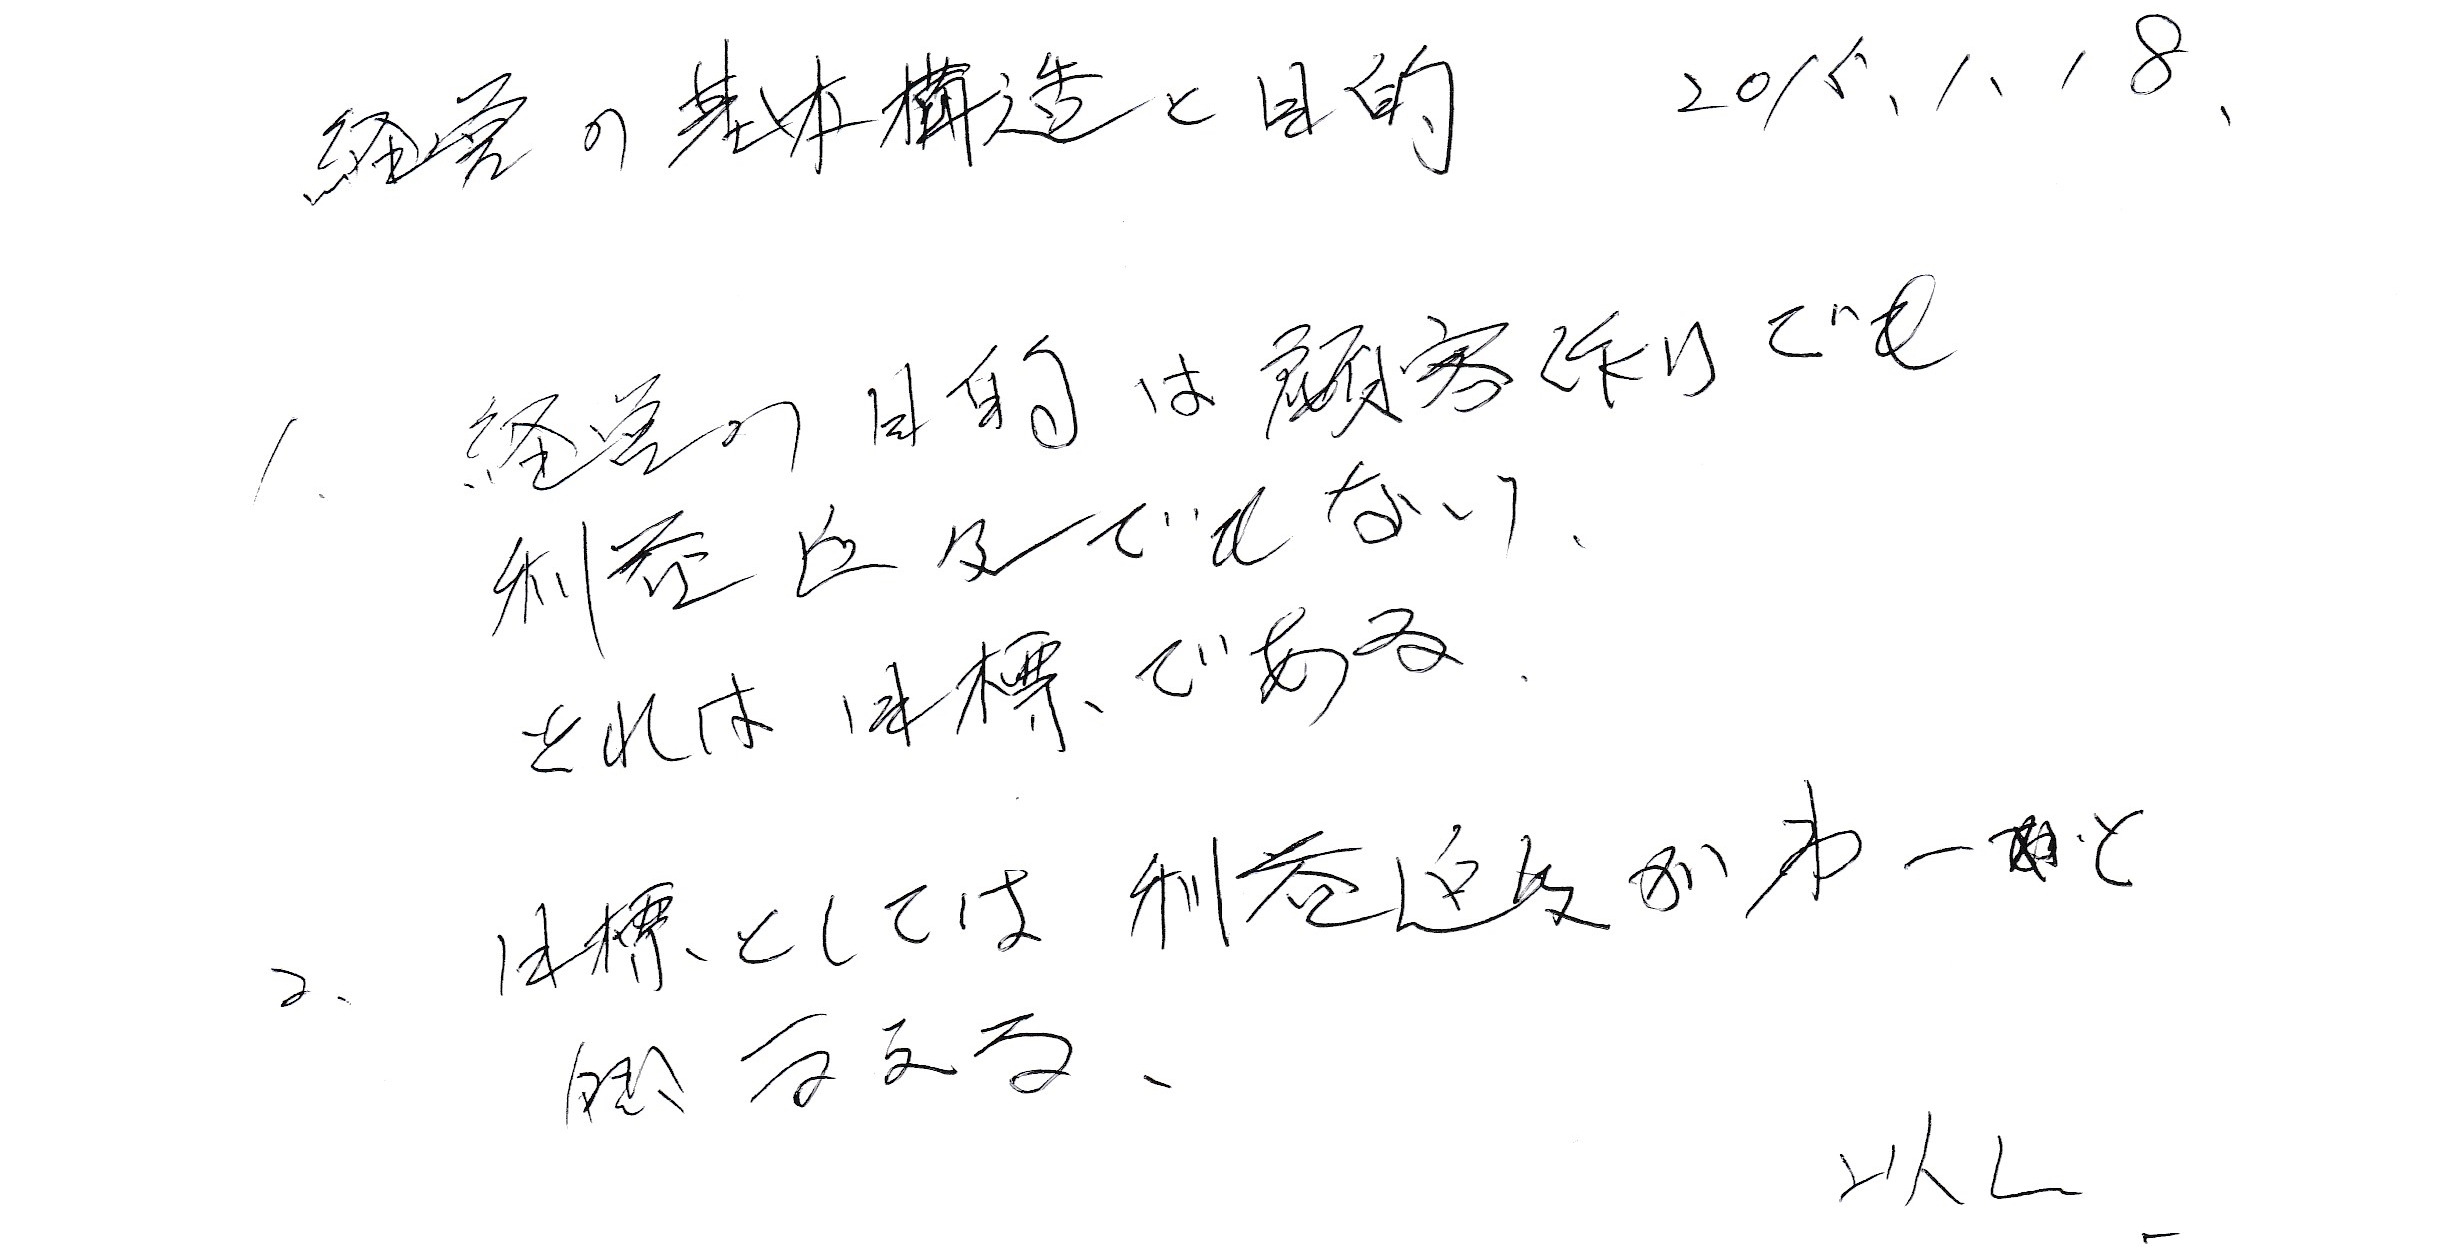 経営の基本構造と目的 2015.1.18.
1. 経営の目的は顧客作りでも
利益追及でもない、
それは目標である.
2. 目標としては利益追及が第一と
考える、
以上